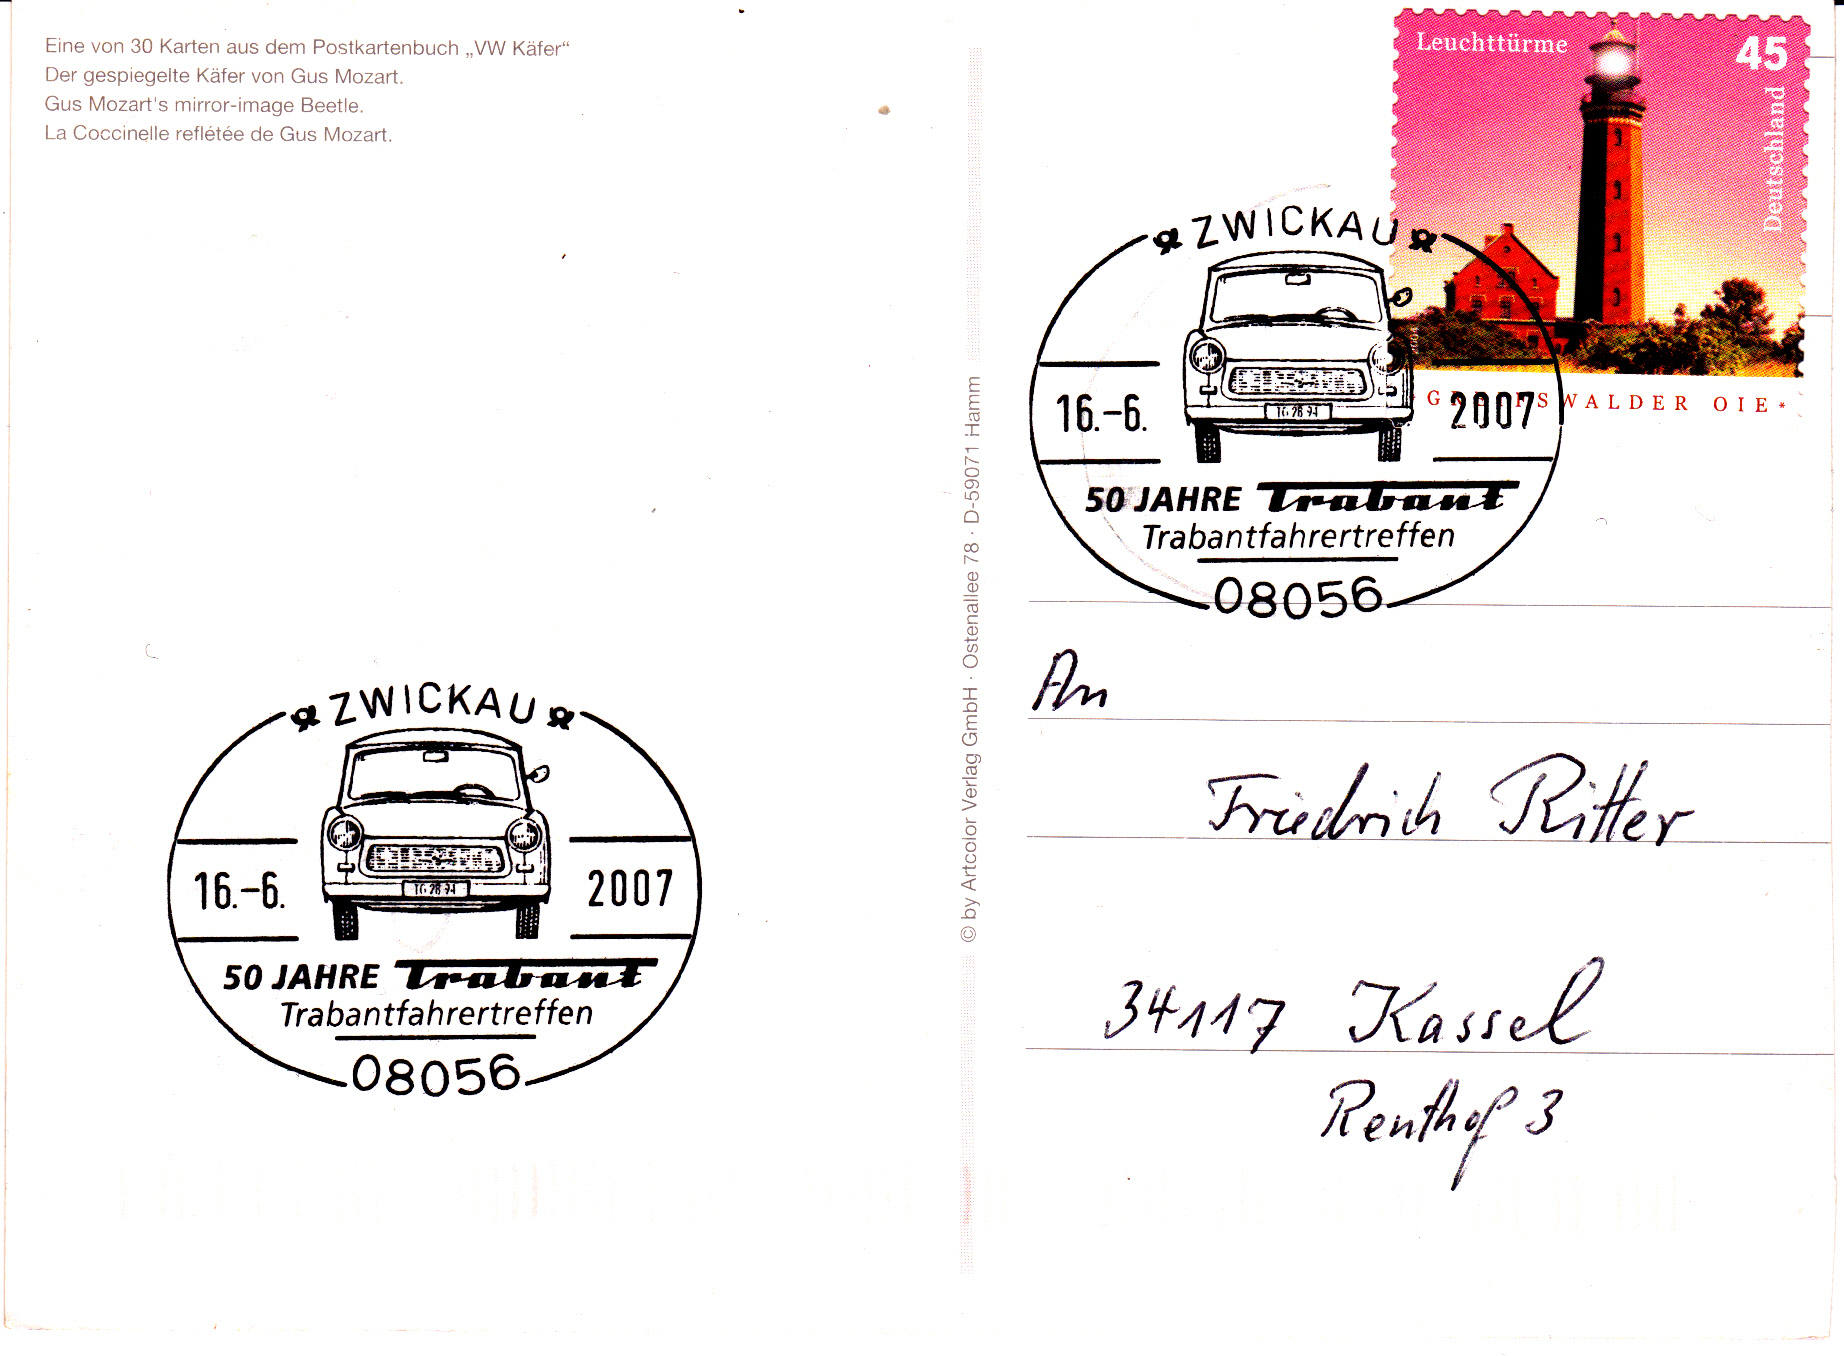 Eine von 30 Karten aus dem Postkartenbuch „VW Käfer“
Der gespiegelte Käfer von Gus Mozart.
Gus Mozart's mirror-image Beetle.
La Coccinelle reflétée de Gus Mozart.
ZWICKAU
16.-6. 2007
50 JAHRE Trabant
Trabantfahrertreffen
08056
© by Artcolor Verlag GmbH · Ostenallee 78 · D-59071 Hamm
Leuchttürme 45
Deutschland
GREIFSWALDER OIE
ZWICKAU
TG 28 94
16.-6. 2007
50 JAHRE Trabant
Trabantfahrertreffen
08056
An
Friedrich Ritter
34117 Kassel
Renthof 3